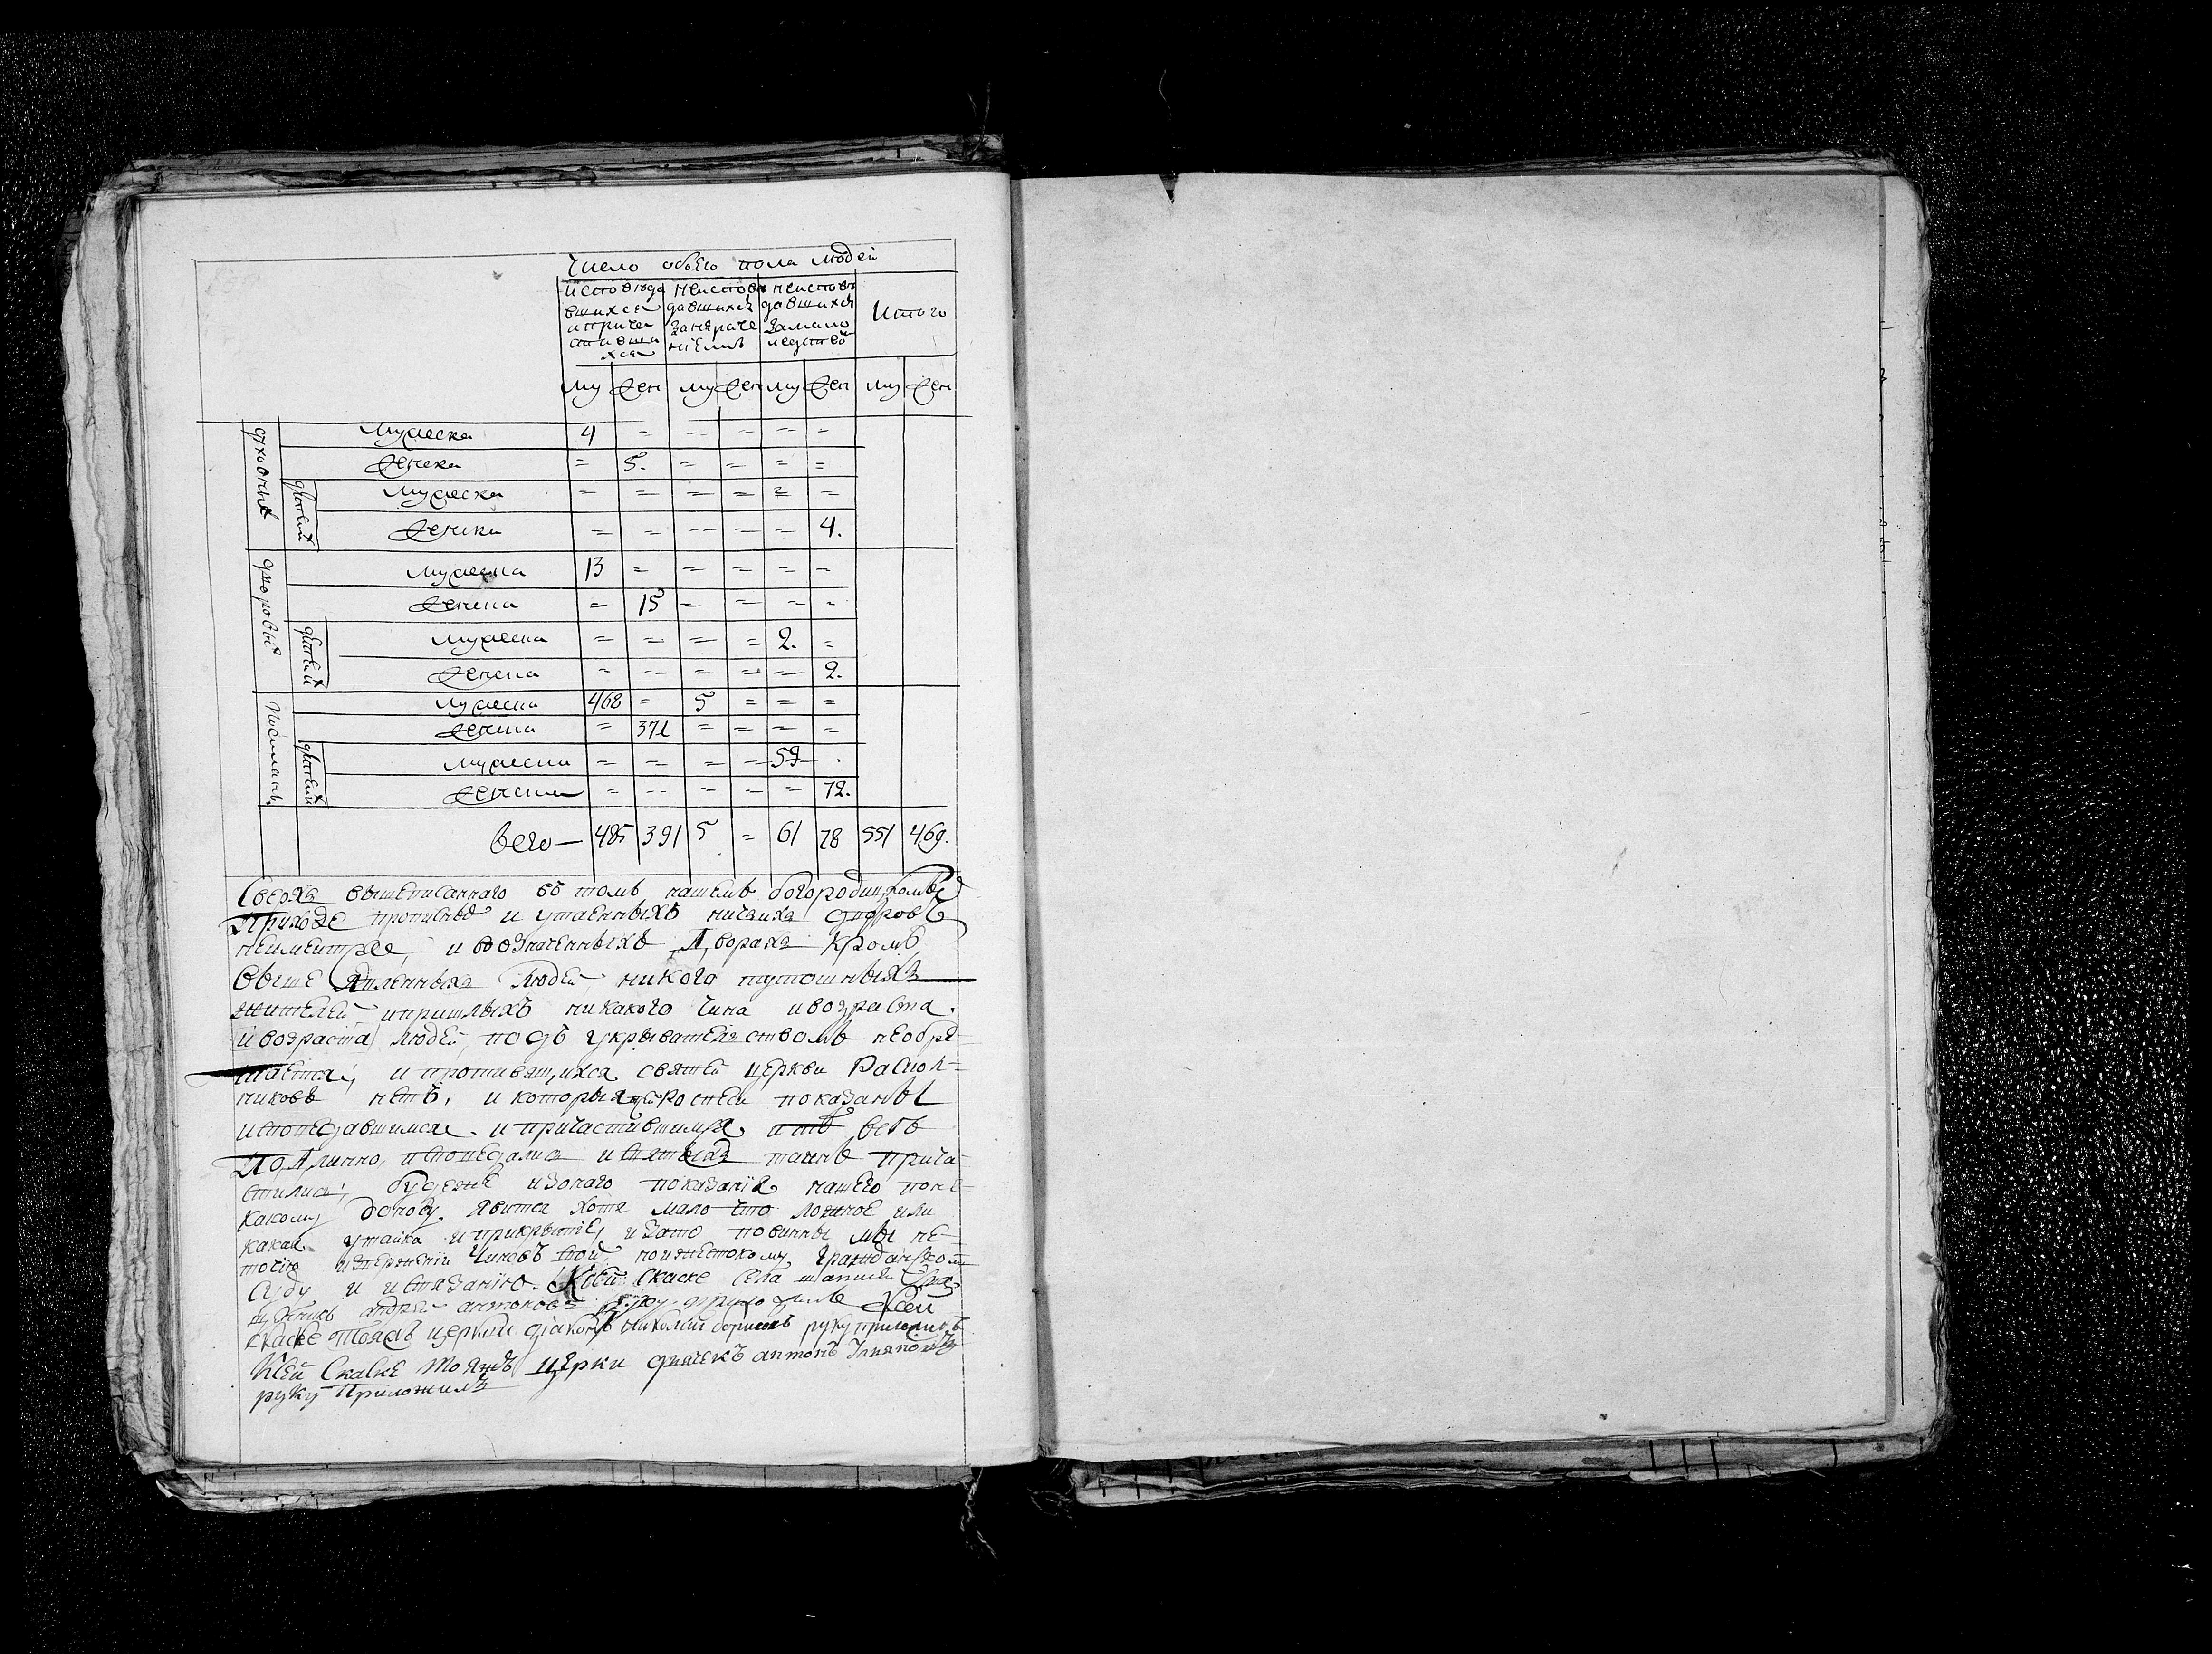 Число обоего пола людей
исповѣда
вшихся
и приче
стивши
хся
неиспов
давшихся
за нераче
нїемъ
неиспов
давшихся
за мало
лѣдство
Итого
му жен му жен му жен му жен
духовных
мужеска 4 = = = = =
женска = 5. = = = =
детей их
мужеска = = = = = =
женска = = = = = 4.
дворовых
мужеска 13 = = = = =
женска = 15 = = = =
детей их
мужеска = = = = 2. =
женска = = = = = 2.
посилянъ
мужеска 468 = 5 = = =
женска = 371 = = = =
детей их
мужеска = = = = 59 .
женска = = = = = 72.
всего — 485 391 5 = 61 78 551 469.
Сверхъ вышеписаннаго въ томъ нашемъ богородицкомъ
приходе прописныхъ и утаенныхъ ничьихъ дворовъ
неимеитсяе, и воозначенныхъ дворахъ кромѣ
выше людей никого тутошныхъ
жителей и пришлыхъ никакого чина и возраста.
и возраста людей, подъ укрывателствомъ необре-
тается, и противящихся святей церкви Раскол-
никовъ нетъ, и которыя росписи показаны
исповедавшимся и причастившимися и тѣ всѣ
подлинно исповедались и святыхъ таинъ прича-
стились, будеже изонаго показанїя нашего поне-
какому доводу явится хотя мало что ложное или
какая утайка и прикрытие, и зато повинны мы не-
точїю изверженїи чиновъ свой но и жестокому гражданском
суду и истязанїю. Ксей скаске села
андрей антоновъ руку приложилъ Ксей
скаске тояжъ церкви дїаконъ николай борисовъ руку приложилъ
Ксей Скаске тояжъ церкви дьячекъ антонъ
руку приложилъ